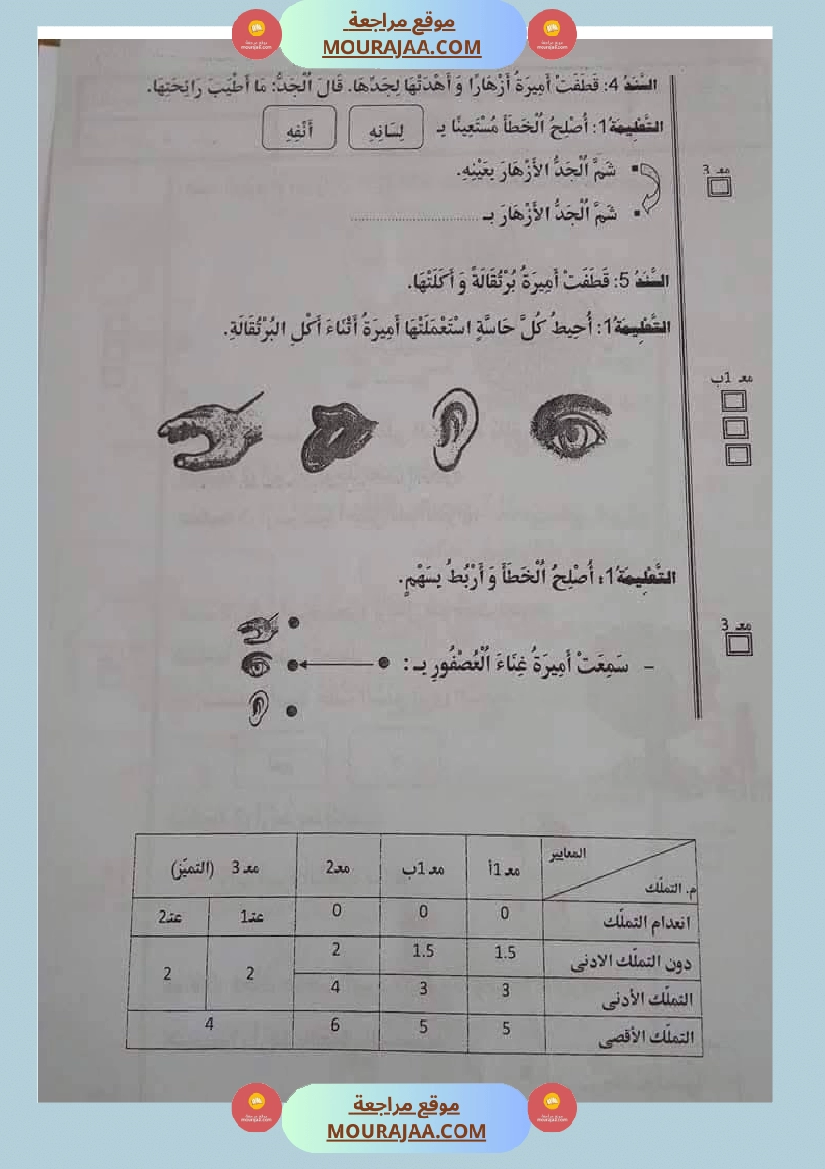 موقع مراجعة
MOURAJAA.COM
السَّنَدُ 4: قَطَفَتْ أَمِيرَةُ أَزْهَارًا وَ أَهْدَتْهَا لِجَدِّهَا. قَالَ اُلْجَدُّ: مَا أَطْيَبَ رَائِحَتَهَا.
التَّعْلِيمَةُ1: أُصْلِحُ اُلْخَطَأَ مُسْتَعِينًا بِـ لِسَانِهِ أَنْفِهِ
معـ 3
شَمَّ اُلْجَدُّ الأَزْهَارَ بِعَيْنِهِ.
شَمَّ اُلْجَدُّ الأَزْهَارَ بـ ................................
السَّنَدُ 5: قَطَفَتْ أَمِيرَةُ بُرْتُقَالَةً وَ أَكَلَتْهَا.
التَّعْلِيمَةُ1: أُحِيطُ كُلَّ حَاسَّةٍ اسْتَعْمَلَتْهَا أَمِيرَةُ أَثْنَاءَ أَكْلِ البُرْتُقَالَةِ.
معـ 1ب
التَّعْلِيمَةُ1: أُصْلِحُ اُلْخَطَأَ وَ أَرْبُطُ بِسَهْمٍ.
معـ 3
– سَمِعَتْ أَمِيرَةُ غِنَاءَ اُلْعُصْفُورِ بـ :
المعايير
م. التملّك معـ 1أ معـ 1ب معـ2 معـ 3 (التميّز)
انعدام التملّك 0 0 0 عنـ1 عنـ2
دون التملّك الادنى 1.5 1.5 2 2 2
التملّك الأدنى 3 3 4
التملّك الأقصى 5 5 6 4
موقع مراجعة
MOURAJAA.COM